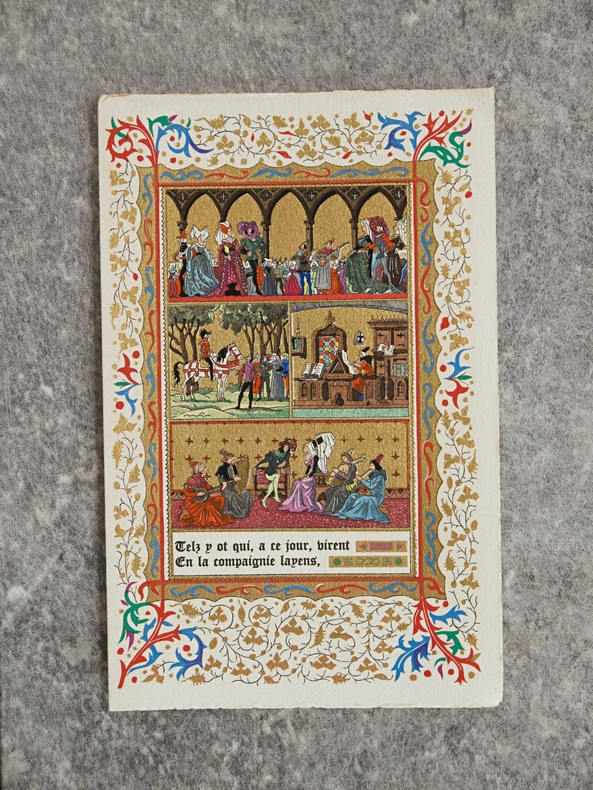 Telz y ot qui, a ce jour, virent
En la compaignie layens,